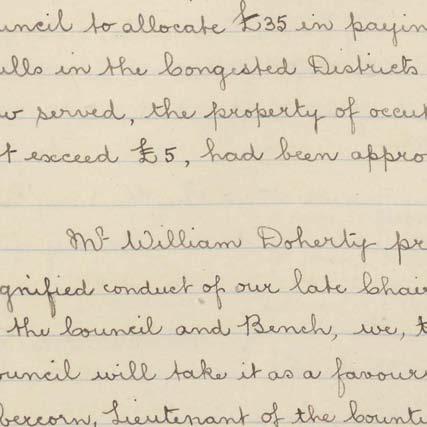 uncil to allocate £35 in payin
ulls in the Congested Districts
w served, the property of occu
t exceed £5, had been appro
Mr William Doherty pr
gnified conduct of our late Chair
the Council and Bench, we, t
ouncil will take it as a favour
bercorn, Lieutenant of the County